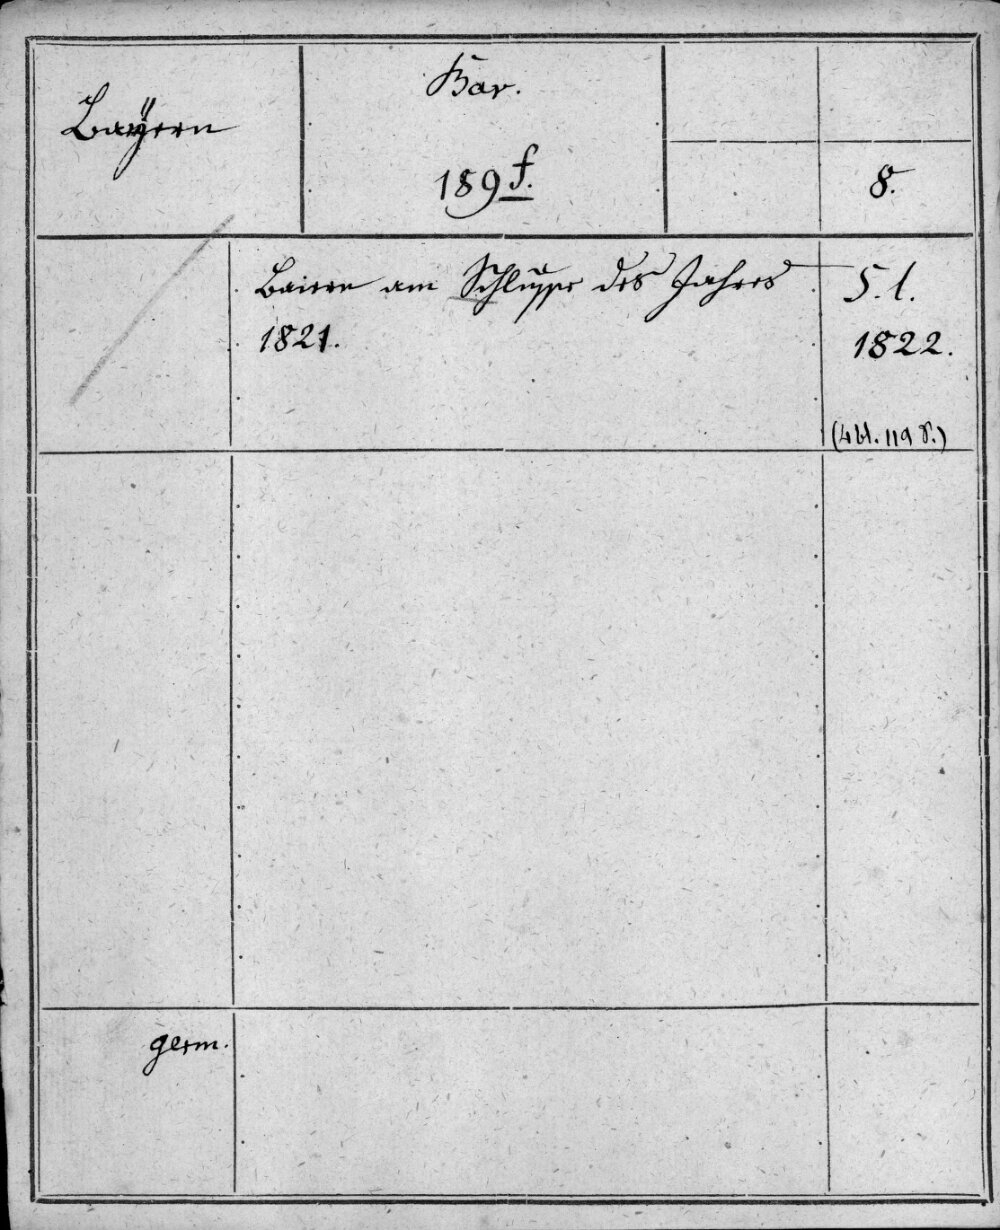 Bayern
Bav.
189 f.
8.
Baiern am Schlusse des Jahres
1821.
S. l.
1822.
(4 bl. 119 S.)
germ.